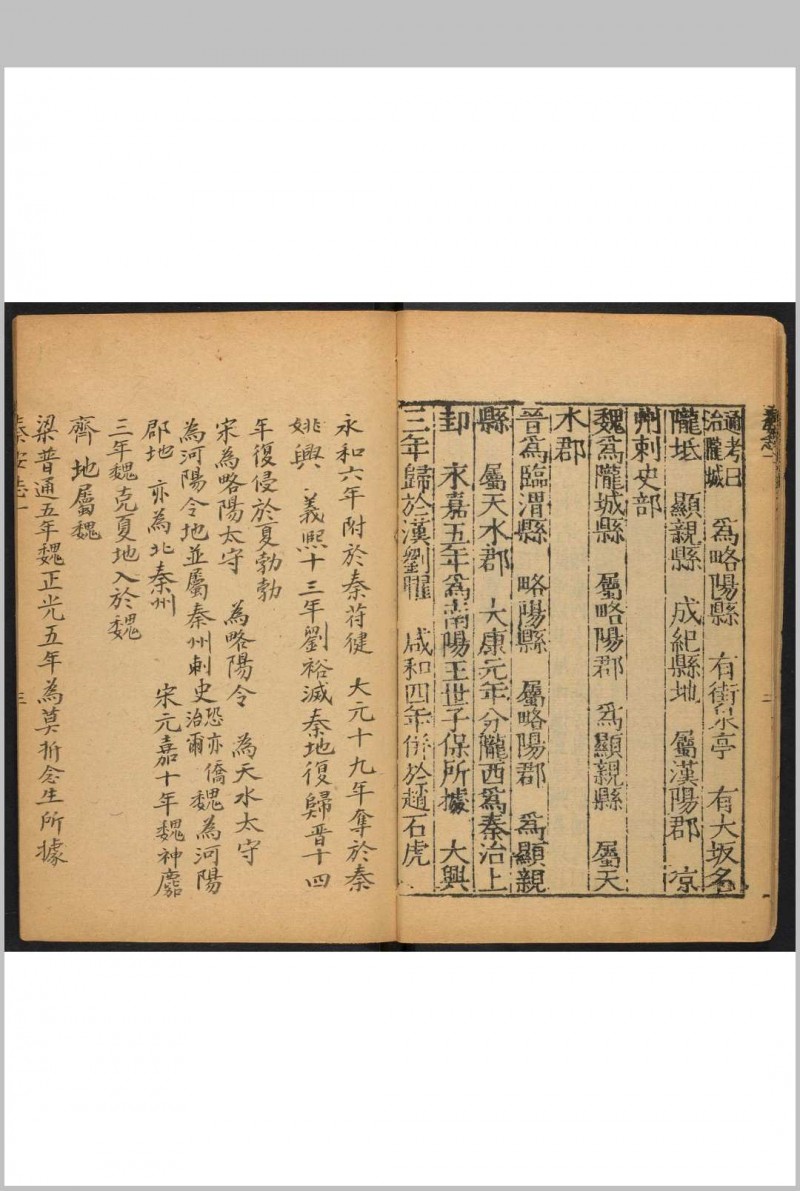 通考曰治隴城　爲略陽縣　有街泉亭　有大坂名
隴坻　顯親縣　成紀縣地　屬漢陽郡　凉
州刺史部
魏爲隴城縣　屬略陽郡　爲顯親縣　屬天
水郡
晉爲臨渭縣　略陽縣　屬略陽郡　爲顯親
縣　屬天水郡　大康元年分隴西爲秦治上
邽　永嘉五年爲南陽王世子保所據　大興
三年歸於漢劉曜　咸和四年併於趙石虎
二
永和六年附於秦苻健　大元十九年奪於秦
姚興　義熙十三年劉裕滅秦地復歸晉十四
年復侵於夏勃勃
宋為略陽太守　為略陽令　為天水太守
為河陽令地並屬秦州刺史恐亦僑治爾　魏為河陽
郡地　亦為北秦州　宋元嘉十年魏神䴥
三年魏克夏地入於魏
齊地屬魏
梁普通五年魏正光五年為莫折念生所據
秦安志一
三